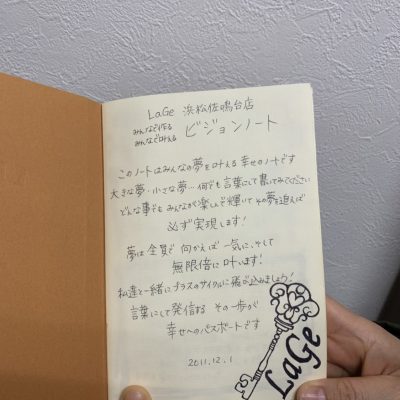 LaGe 浜松佐鳴台店
みんなで作る
みんなで叶える
ビジョンノート
このノートはみんなの夢を叶える幸せのノートです
大きな夢…小さな夢…何でも言葉にして書いてみてください
どんな事でもみんなが楽しんで輝いてその夢を追えば
必ず実現します!
夢は全員で向かえば一気に、そして
無限倍に叶います!
私達と一緒にプラスのサイクルに飛び込みましょう!
言葉にして発信する その一歩が
幸せへのパスポートです
2011.12.1
LaGe